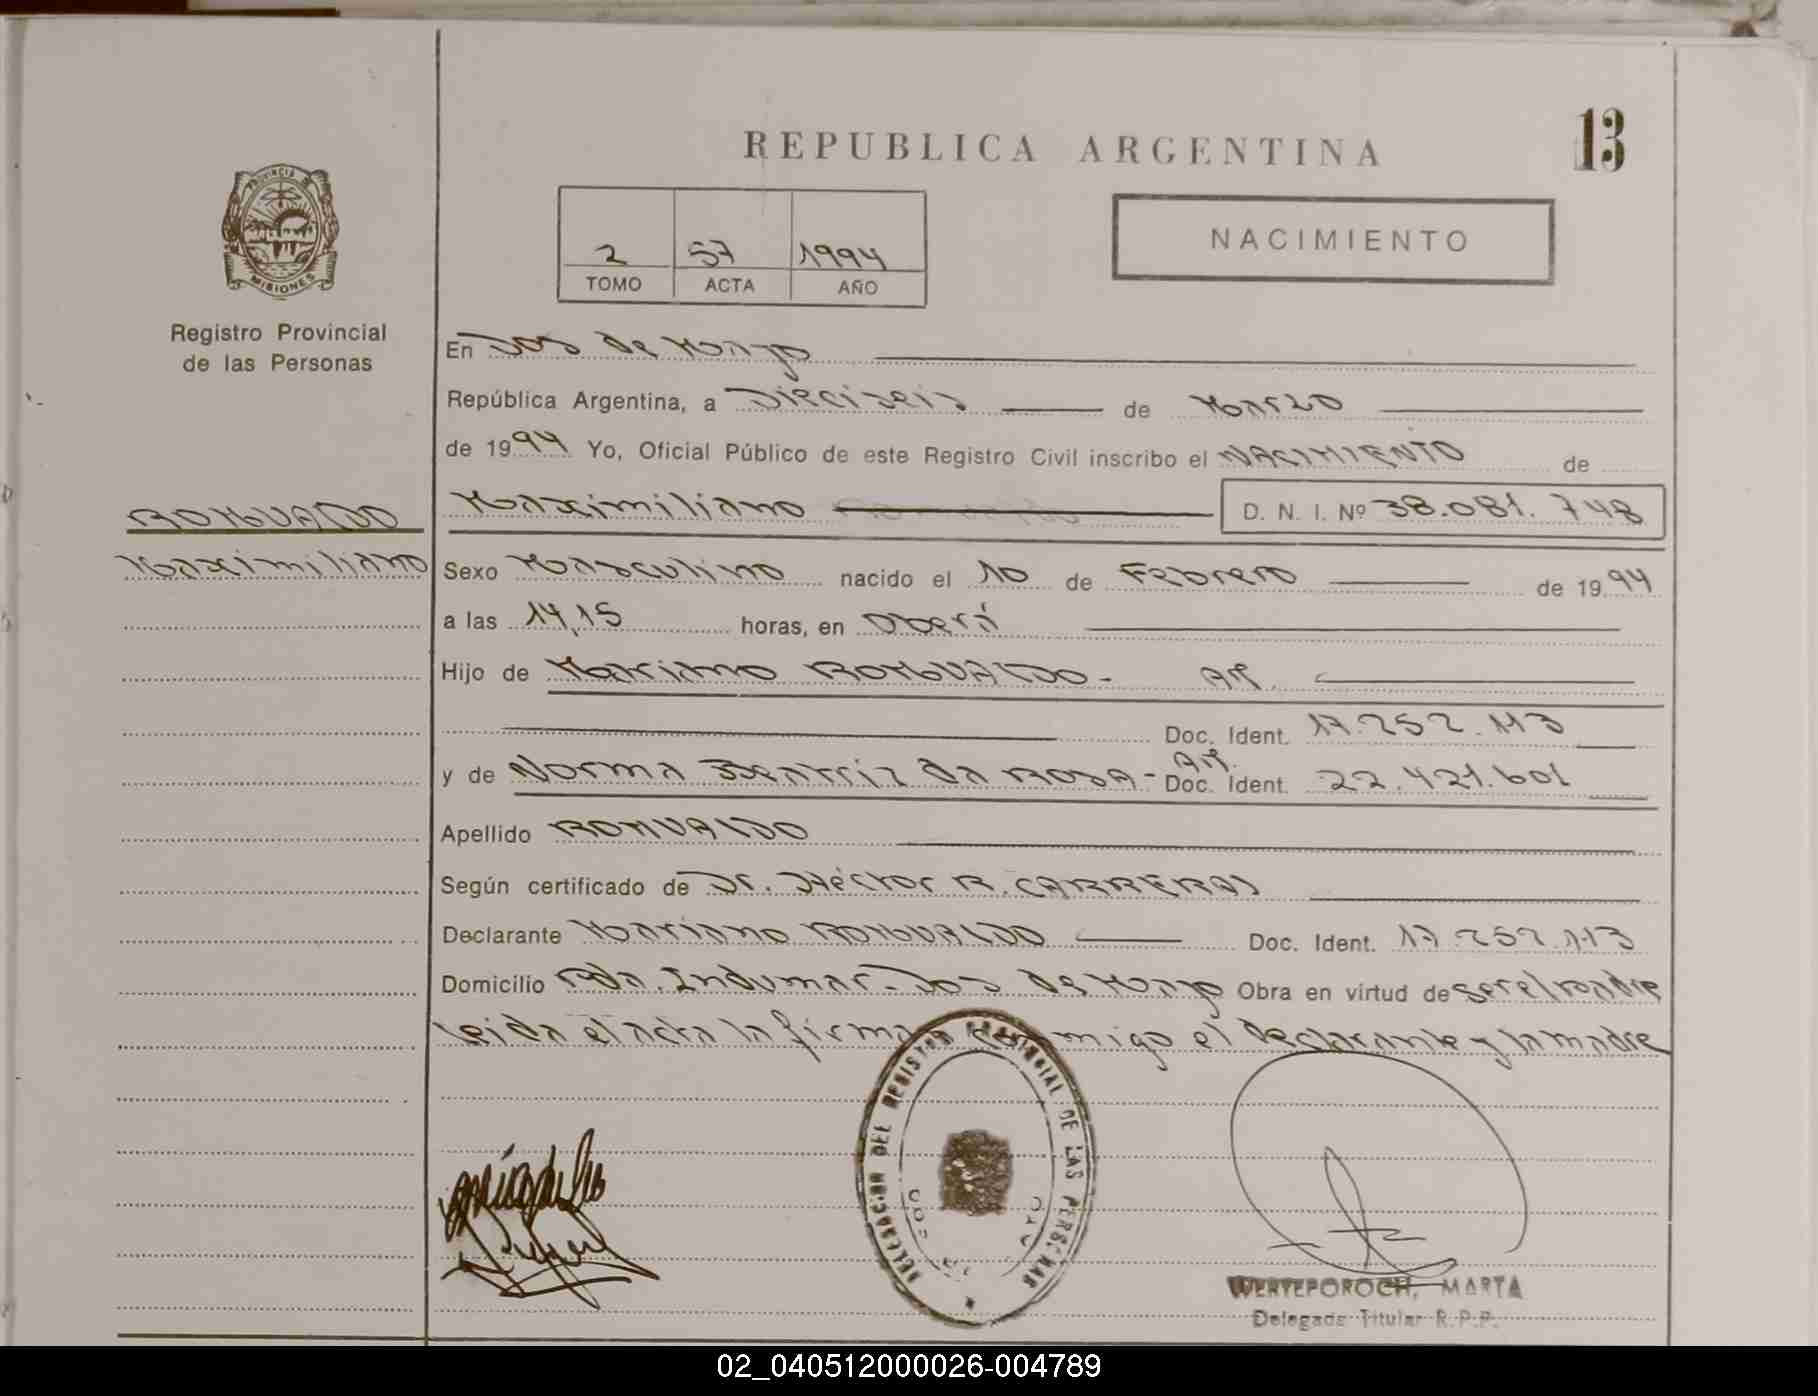 13
REPUBLICA ARGENTINA
PROVINCIA DE
MISIONES
Registro Provincial
de las Personas
2 57 1994
TOMO ACTA AÑO
NACIMIENTO
En Dos de Mayo
República Argentina, a Dieciseis de Marzo
de 1994 Yo, Oficial Público de este Registro Civil inscribo el NACIMIENTO de
ROMUALDO
Maximiliano
Maximiliano D. N. I. Nº 38.081.748
Sexo Masculino nacido el 10 de Febrero de 1994
a las 14,15 horas, en Oberá
Hijo de Mariano ROMUALDO- Ar.
Doc. Ident. 17.252.113
y de Norma Beatriz da ROSA- Ar. Doc. Ident. 22.421.601
Apellido ROMUALDO
Según certificado de Dr. Héctor R. CARRERAS
Declarante Mariano ROMUALDO Doc. Ident. 17.252.113
Domicilio Pda. Indumar-Dos de Mayo Obra en virtud de ser el padre
Leida el acta la firma conmigo el declarante y la madre
DELEGACION DEL REGISTRO PROVINCIAL DE LAS PERSONAS
DOS DE MAYO
WERTEPOROCH, MARTA
Delegada Titular R.P.P.
02_040512000026-004789